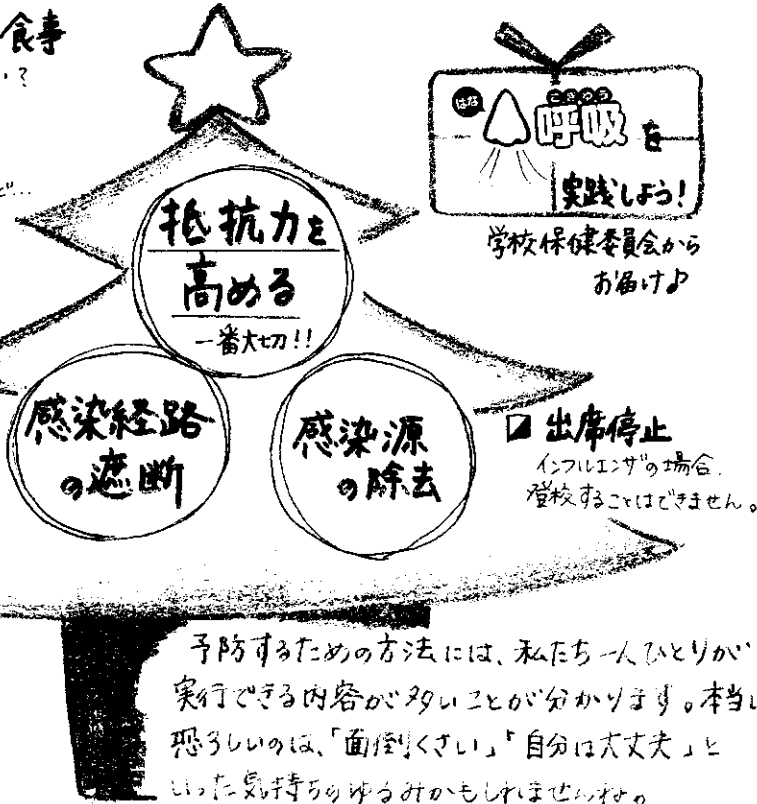 食事
い?
ど…
はな
こきゅう
呼吸を
実践しよう!
学校保健委員会から
お届け♪
抵抗力を
高める
一番大切!!
感染経路
の遮断
感染源
の除去
出席停止
インフルエンザの場合、
登校することはできません。
予防するための方法には、私たち一人ひとりが
実行できる内容が多いことが分かります。本当に
恐ろしいのは、「面倒くさい」「自分は大丈夫」と
いった気持ちのゆるみかもしれませんね。